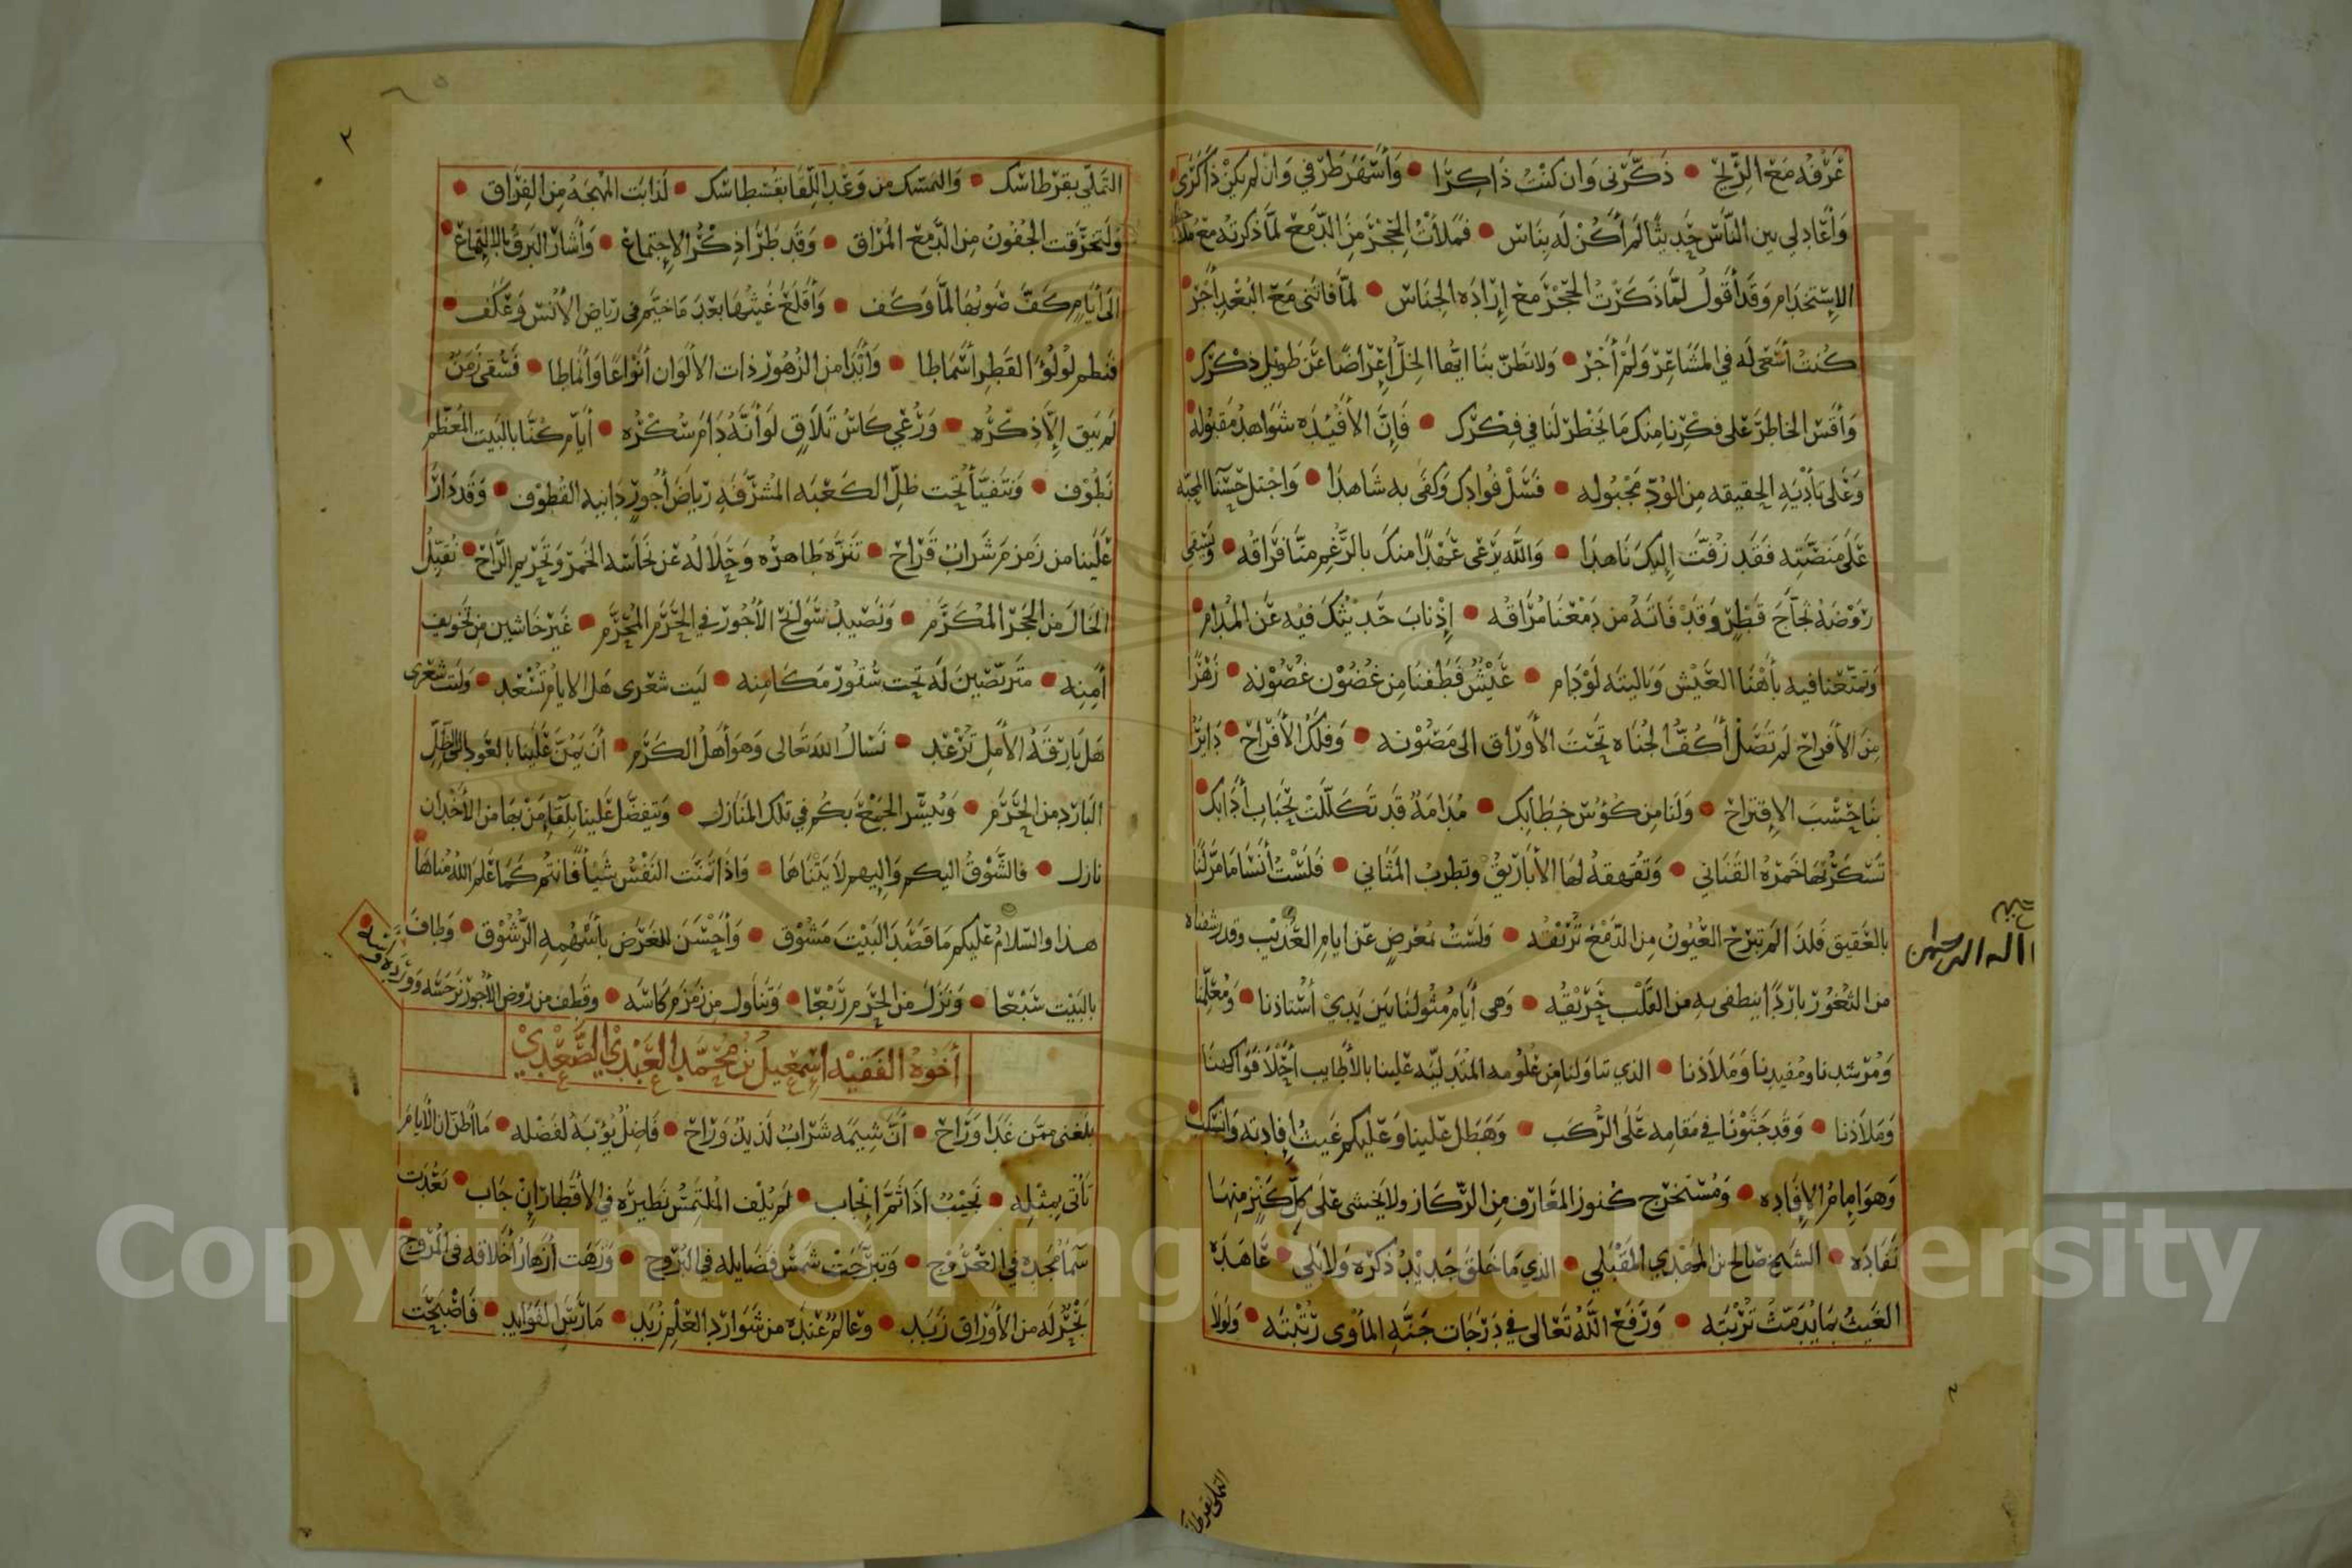 عَرْفُه مَعَ الرِّيْحِ • ذَكَّرَنِى وَاِن كُنْتُ ذَاكِرًا • وَأَسْهَرَ طَرْفِي وَانْ لم يكنْ ذَا كَرًى
وَأَعَادلي بين النّاسِ حَدِيثًا لَم أَكُنْ لَه بِنَاسِ • فَملأتُ الحَجْرَ مِنَ الدَّمْعِ لمَّا ذكرتُه مَعَ
الإِسْتخدَامِ وَقَد أَقُولُ لمَّا ذَكَرْتُ الحِجْرَ مَعَ إِرَادَه الجِنَاسِ • لمَّا فاتَنى مَعَ البُعْدِ أَجْرٌ
كُنتُ أَسْعَى لَه في المَشَاعِرِ وَلَم أَجْرِ • وَلا تَظنّ بنَا ايّها الخِلُّ إِعْرَاضًا عَن طَويْلِ ذِكْرِكَ
وَأَقِسِ الخاطِرَ عَلى فِكْرِنا مِنك مَا يَخْطُرُ لنَا في فِكْرِكَ • فَإِنَّ الأَفْئِدَه شَوَاهِدُ مَقبُوله
وَعَلى تَأْدِيَهِ الحقيقه مِن الوُدِّ مَجْبُوله • فَسَلْ فُؤادكَ وَكَفَى به شَاهدًا • وَاجْتلِ حَسْنَا المحبّه
عَلَى مَنصَّتِه فَقَد زُفَّت إِليكَ نَاهدًا • وَاللَّه يَرْعَى عَهْدًا منكَ بالرَّغمِ منَّا فِرَاقُه • وَيَسْقى
رَوْضَهُ ثجَّاجَ قَطْرٍ وَقَدْ فَاتَهُ من دَمْعنَا مُرَاقُه • إِذْ نابَ حَدِيْثُكَ فيه عَن المُدَامِ
وَتمتّعنا فيه بأَهْنَا العَيْشِ وَيَاليتَه لَوْ دَام • عَيْشٌ قَطَفنَا مِن غُضُوْن غُصُوْنِه • زَهْرًا
مِنَ الأَفراحِ لَم تَصَلْ أَكُفُّ الجُنَاه تَحْتَ الأَوْرَاق الى مَصُوْنه • وَفَلَكُ الأَفْرَاحِ • دَايِرٌ
بنَا حَسْبَ الإِقتراحِ • وَلَنَا مِن كُؤُسِ خِطَابِك • مُدَامَةٌ قَد تَكَلَّلَتْ بِحَبَابِ أَدَابِك
تَسْكَرُ بهَا خَمْرَهُ القَنَانِي • وَتقهقهُ لهَا الأَبَارِيقُ وَتطربُ المَثَاني • فَلَسْتُ أَنسَا مَا مَرَّ لنَا
بالعَقِيقِ فَلذَا لم تبرَحْ العُيُونُ مِن الدَّمْعِ تُرْيقُه • وَلَسْتُ بمُعْرضٍ عَن ايامِ العُذَيْبِ وقد رشفناه
من الثغُوْرِ بارِدًا ينطفى به مِن القَلْب حَرِيْقُه • وَهي أَيامُ مثُولنَا بَين يَدِيْ أسْتاذنا • وَمُعَلِّمنَا
وَمُرْشدنا ومُفيدنا وَمَلَاذنا • الذي تناولنا مِن عُلُومه المُتدليّه عَلينا بالأَطَايب أَحْلَا فَوَاكهنَا
وَملاَذنا • وَقَد جَثَوْنَا في مَقامِه عَلَى الرُّكَب • وَهَطلَ عَلينا وَعَليكم غَيثُ إِفادتِه وَانسَكَب
وَهوَ امامُ الإِفَادِه • وَمُسْتخرج كنوزِ المعَارِف مِن الرّكَازِ ولا يخشى عَلَى كلّ كَنْزٍ منهَا
نَفَادَه • الشيخ صَالح بن المهْدِي المَقْبَلي • الذي مَا خَلقَ حَدِيْثُ ذكرِه وَلا بَلي • عَاهَدَه
الغَيثُ بمَا يُدَمّثُ تُرْبَتَه • وَرَفَعَ اللَّهُ تَعَالى في دَرَجَات جَنَّهِ المَأْوى رُتْبتَه • وَلَولا
التملى بقرطاسك
التَّمَلّي بقرطاسك • وَالتمسّك من وَعْدِ اللِّقَا بقُسْطاسك • لَذابَت المُهْجَهُ مِن الفِرَاق •
وَلَتحرَّقت الجفُونُ مِن الدَّمعِ المُرَاق • وَقَد طَرَا ذِكْرُ الإِجتِماعْ • وَأَشارَ البَرقُ بالإِلتِماعْ
الى أَيَامٍ كَفَّ صَوبُهَا لمَّا وَكَف • وَأَقلَعَ غَيثُها بعْدَ مَا خيَّم في ريَاضِ الأُنسِ وَعَكَف
فَنَظم لُؤْلُؤَ القَطرِ أَسْمَاطَا • وَأَبْدَا من الزُّهُوْرِ ذات الأَلوَان أَنْوَاعًا وَأَنْمَاطا • فَسُقى زَمَنٌ
لم يَبق إِلَّا ذكْرُه • وَرُعْي كَاسُ تَلَاقٍ لَوَ أنَّهُ دَامَ سُكْرُه • أَيَّام كُنَّا بالبَيت المُعَظّمِ
نَطُوْف • وَنَتفيَّأُ تحت ظلّ الكَعْبَه المُشرَّفه رِيَاضَ أُجُورٍ دَانيه القُطوْف • وَقد دَارَ
عَلَينا من زَمزمَ شَرابٌ قَرَاح • تنزَّه طَاهرُه وَحَلَالُه عَن نَجَاسَه الخَمْرِ وَتَحْرِيمِ الرَّاح • نُقبِّلُ
الخَالَ من الحَجَرِ المُكَرَّم • وَنصِيدُ سَوَانحَ الأُجُورِ في الحَرَمِ المُحَرَّم • غَيرَ خَاشين مِن تخويفِ
أَمِنِه • مَترَبّصين لَه تَحت سُتُورِ مَكَامنِه • لَيت شعْرى هَل الايامُ تُسْعد • وَلَيت شعْرى
هَل بَارِقَهُ الأَملِ تُرْعد • نَسْالُ اللهَ تَعَالى وَهوَ أَهلُ الكَرَمِ • أَن يَمُنَّ عَلَينا بالعَودِ الى الظِّلِّ
البَارِدِ من الحَرَم • وَيُيسِّر الجَمْعَ بكُم في تلك المَنَازل • وَيَتفضّل عَلَينا بلقَاءِ مَنْ بهَا من الأَخْدَان
نازل • فالشَّوْقُ اليكم وَإِليهم لاَ يَتْنَاهَا • وَاذَا تمنَّت النَّفْسُ شَيْأً فَانتُم كَمَا عَلم اللهُ مُناهَا
هذا والسّلامُ عَليكم مَا قَصَدَ البَيْتَ مَشُوْق • وَأَحْسَنَ للغَرَضِ بأَسْهُمِه الرَّشُوْق • وَطافَ
بالبَيْت سَبْعا • وَنزلَ من الحَرَم رَبْعَا • وَتناول من زَمزَم كَاسَه • وقَطفَ من رَوضِ الأُجُور نَرجسَه وَوَرْدَه
أَخُوْهُ الفَقيْه اسْمعيلُ بن محمَّد العَبْدِيُّ الصَّعْدِيُّ
بَلغنى ممَّن غَدَا وَرَاح • أَنَّ شِيَمَه شَرَابٌ لَذيذٌ وَرَاح • فَاضِلٌ يُؤْبَهُ لفَضْله • مَا أَظن ان الأَيامَ
تَأتى بمثْلِه • نجيْبٌ اذَا ثَمَّ إِنْجاب • لم يُلْف المُلتَمِسُ نَطيرَه في الأَقْطار إِنْ جَاب • بَعُدَت
سَمَا مَجْدِه في العُرُوْج • وَتبرَّجَتْ شَمْسُ فَضَايله في البُرُوج • وَزَهَت أَزهَارُ أَخْلاقه في المُرُوج
بَحْرٌ لَه من الأَورَاق زَبَد • وعَالمٌ عنْدَه من شَوَارِدِ العِلْم زُبَد • مَارَسَ الفَوَايد • فَأَصْبَحَت